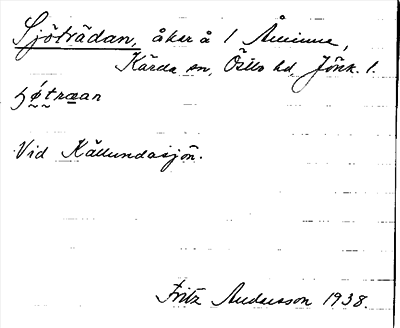 Sjöträdan, åker å 1 Åminne,
Kärda sn, Östbo hd, Jönk. l.
ɧø̰t̰ræar
Vid Källundasjön.
Fritz Andersson 1938.